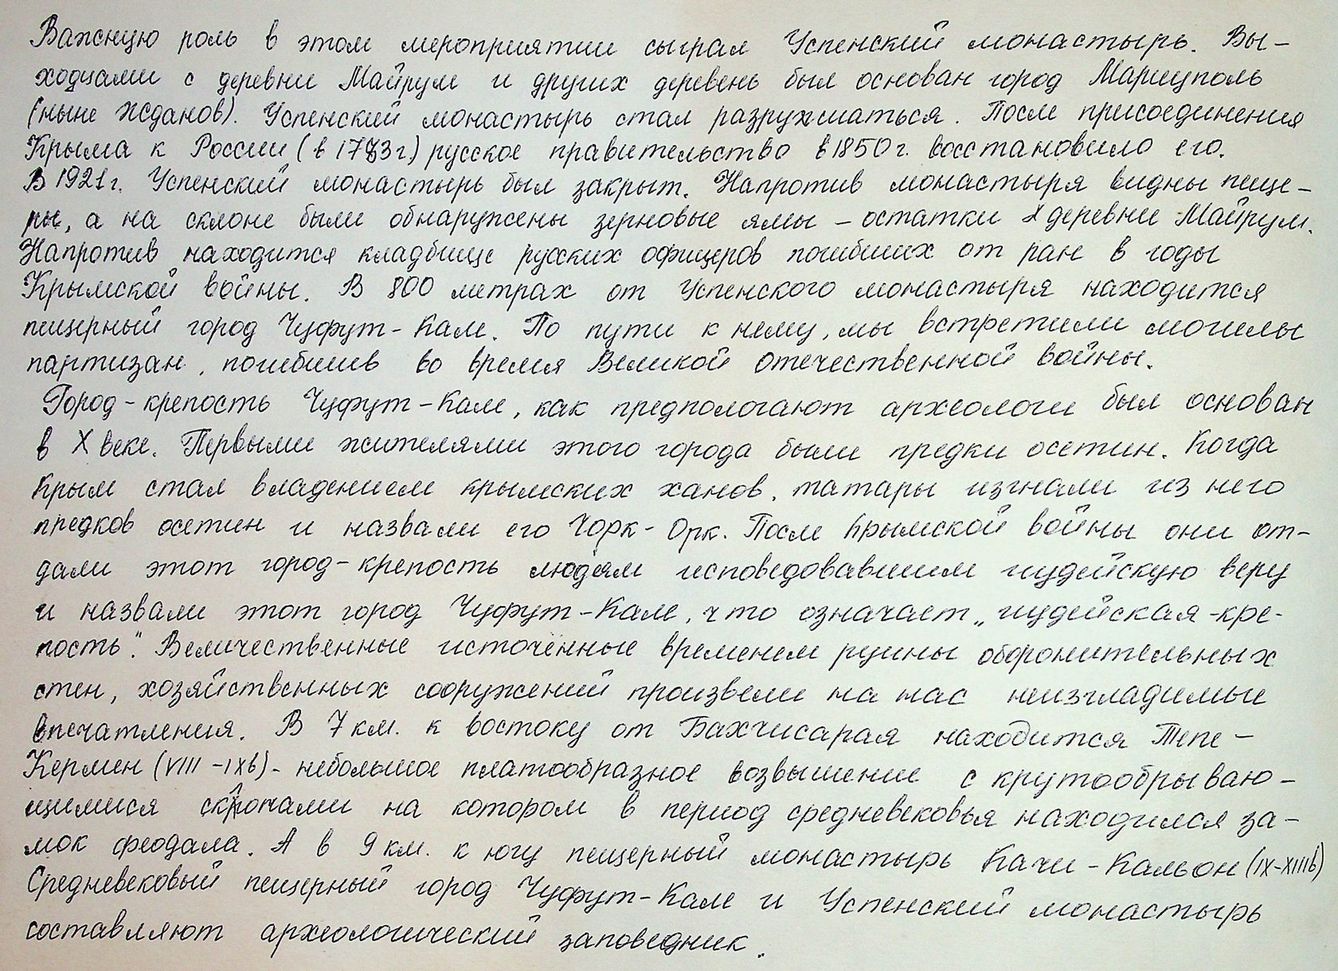 Важную роль в этом мероприятии сыграл Успенский монастырь. Вы-
ходцами с деревни Майрум и других деревень был основан город Мариуполь
(ныне Жданов). Успенский монастырь стал разрушаться. После присоединения
Крыма к России (в 1783г) русское правительство в 1850г. восстановило его.
В 1921г. Успенский монастырь был закрыт. Напротив монастыря видны пеще-
ры, а на склоне были обнаружены зерновые ямы – остатки деревни Майрум.
Напротив находится кладбище русских офицеров погибших от ран в годы
Крымской войны. В 800 метрах от Успенского монастыря находится
пещерный город Чуфут-Кале. По пути к нему, мы встретили могилы
партизан, погибшив во время Великой отечественной войны.
Город-крепость Чуфут-Кале, как предпологают археологи был основан
в X веке. Первыми жителями этого города были предки осетин. Когда
Крым стал владением крымских ханов, татары изгнали из него
предков осетин и назвали его Чорк-Орк. После Крымской войны они от-
дали этот город-крепость людям исповедовавшим иудейскую веру
и назвали этот город Чуфут-Кале, что означает „иудейская-кре-
пость". Величественные источенные временем руины оборонительных
стен, хозяйственных сооружений произвели на нас неизгладимые
впечатления. В 7 км. к востоку от Бахчисарая находится Тепе-
Кермен (VIII – IXв) - небольшое платообразное возвышение с крутообрываю-
щимися склонами на котором в период средневековья находился за-
мок феодала. А в 9 км. к югу пещерный монастырь Качи-Кальон (IX-XIIIв)
Средневековый пещерный город Чуфут-Кале и Успенский монастырь
составляют археологический заповедник.